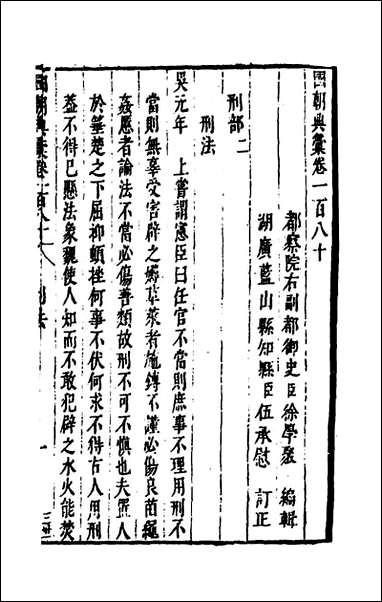 國朝典彙卷一百八十
都察院右副都御史臣徐學聚 編輯
湖廣藍山縣知縣臣伍承慰 訂正
刑部二
刑法
吳元年 上嘗謂憲臣曰任官不當則庶事不理用刑不
當則無辜受害辟之薅草萊者施鎛不謹必傷良苗繩
姦慝者論法不當必傷善類故刑不可不慎也夫置人
於箠楚之下屈抑頓挫何事不伏何求不得古人用刑
蓋不得已懸法象魏使人知而不敢犯辟之水火能焚
國朝典彙卷一百八十 刑法 一